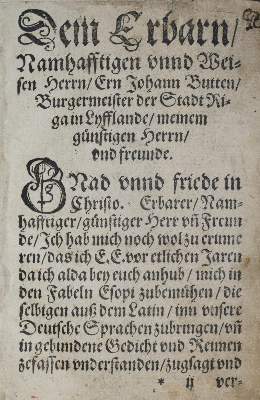 Dem Erbarn/
Namhafftigen vnnd Wei-
sen Herrn/ Ern Johann Butten/
Burgermeister der Stadt Ri-
ga in Lyfflande/ meinem
günstigen Herrn/
vnd freunde.
GNad vnnd friede in
Christo. Erbarer/ Nam-
hafftiger/ günstiger Herr vñ Freun
de/ Ich hab mich noch wol zu erinne
ren/ das ich E. E. vor etlichen Jaren
da ich alda bey euch anhub/ mich in
den Fabeln Esopi zubemühen/ die
selbigen auß dem Latin/ inn vnsere
Deutsche Sprachen zubringen/ vñ
in gebundene Gedicht vnd Reimen
zefassen vnderstanden/ zugsagt vnd
* ij ver-